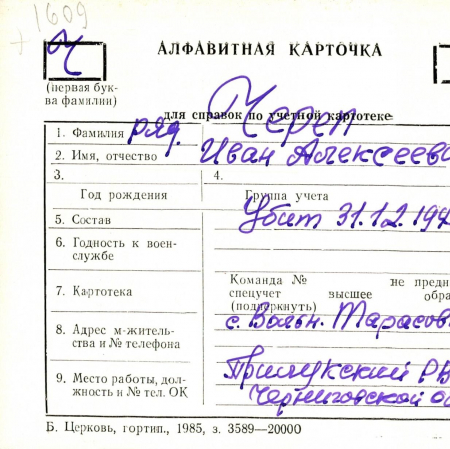 1609
Ч АЛФАВИТНАЯ КАРТОЧКА
(первая бук-
ва фамилии)
для справок по учетной картотеке
1. Фамилия ряд. Череп
2. Имя, отчество Иван Алексеев
3. 4.
Год рождения Группа учета
5. Состав Убит 31.12.194
6. Годность к воен-
службе
7. Картотека Команда № не предн
спецучет высшее обра
(подчеркнуть)
8. Адрес м-житель-
ства и № телефона с. Вольн. Тарасов
9. Место работы, дол-
жность и № тел. ОК Прилукский РВ
Черниговской о
Б. Церковь, гортип., 1985, з. 3589—20000